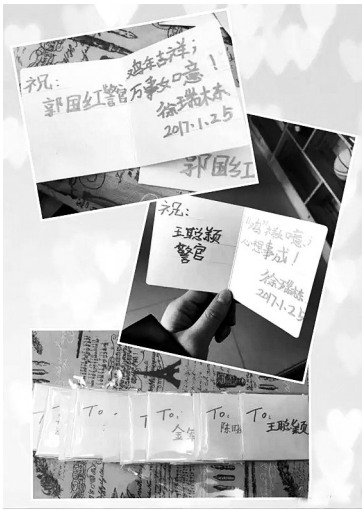 祝:
郭国红警官
鸡年吉祥;
万事如意!
徐瑞林
2017.1.25
郭国红
祝:
王聪颖
警官
心想事成!
徐瑞林
2017.1.25
To:
To:
To:
金
To:
陈
To:
王聪颖